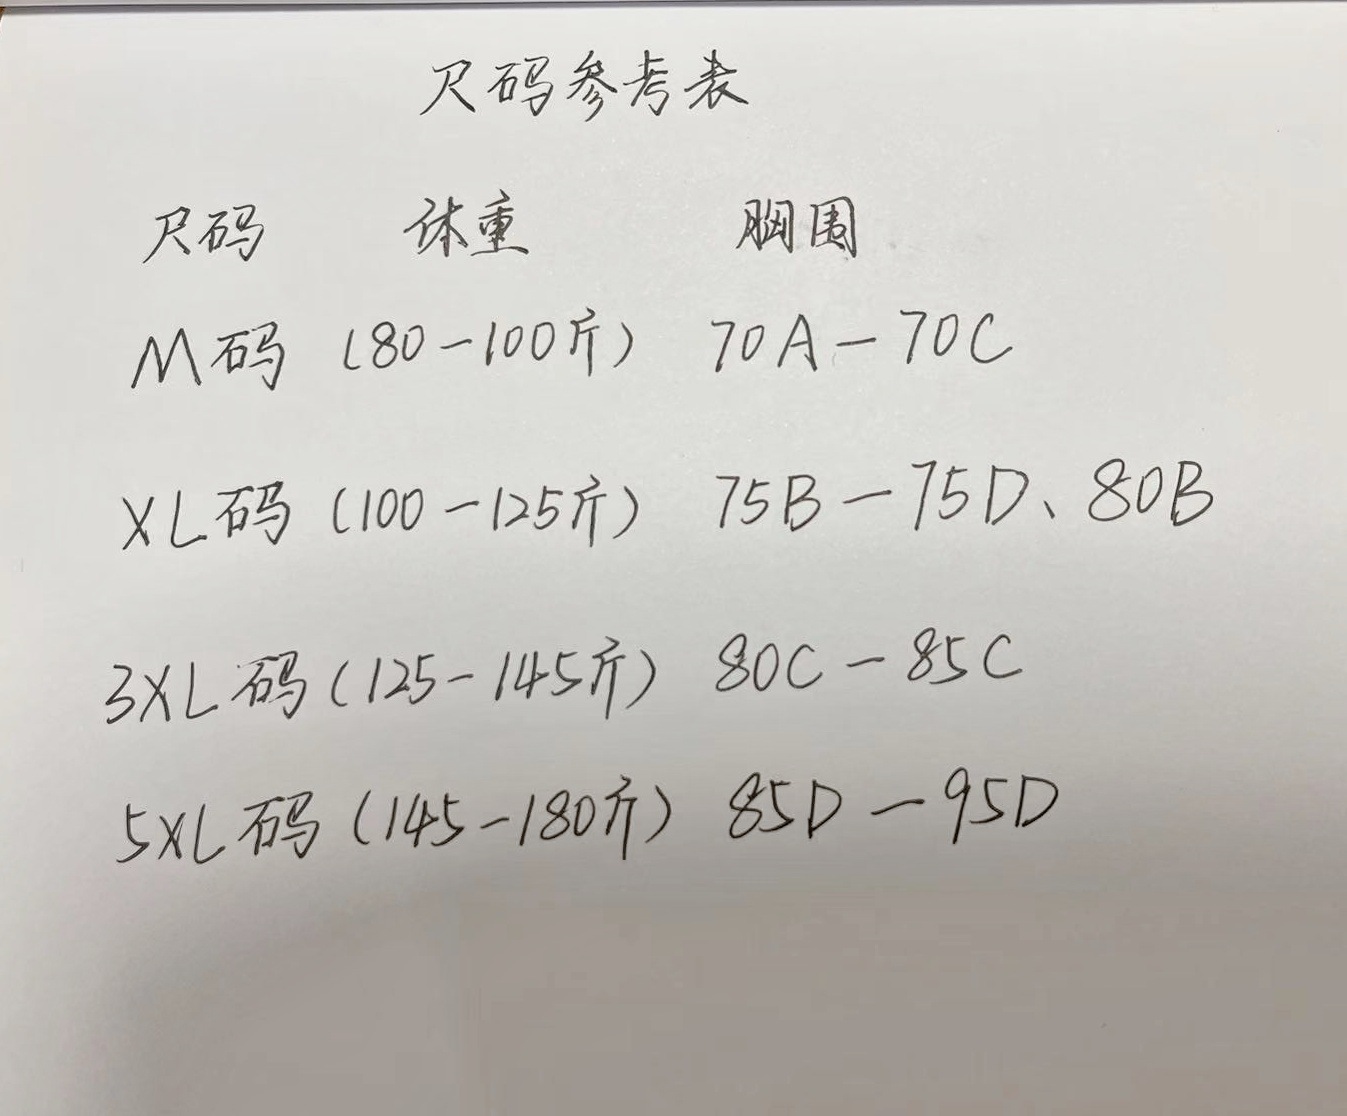 尺码参考表
尺码 体重 胸围
M码 (80-100斤) 70A-70C
XL码 (100-125斤) 75B-75D、80B
3XL码 (125-145斤) 80C-85C
5XL码 (145-180斤) 85D-95D